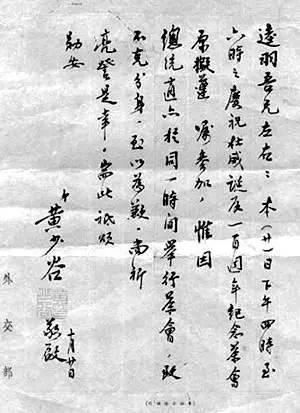 逵羽吾兄左右：本(廿)日下午四時至
六時之慶祝杜威誕辰一百週年紀念茶會
原擬遵囑參加，惟因
總統適亦於同一時間舉行茶會，致
不克分身，至以為歉，尚祈
亮詧是幸，耑此祗頌
勛安
黃少谷 敬啟
十月廿日
外交部